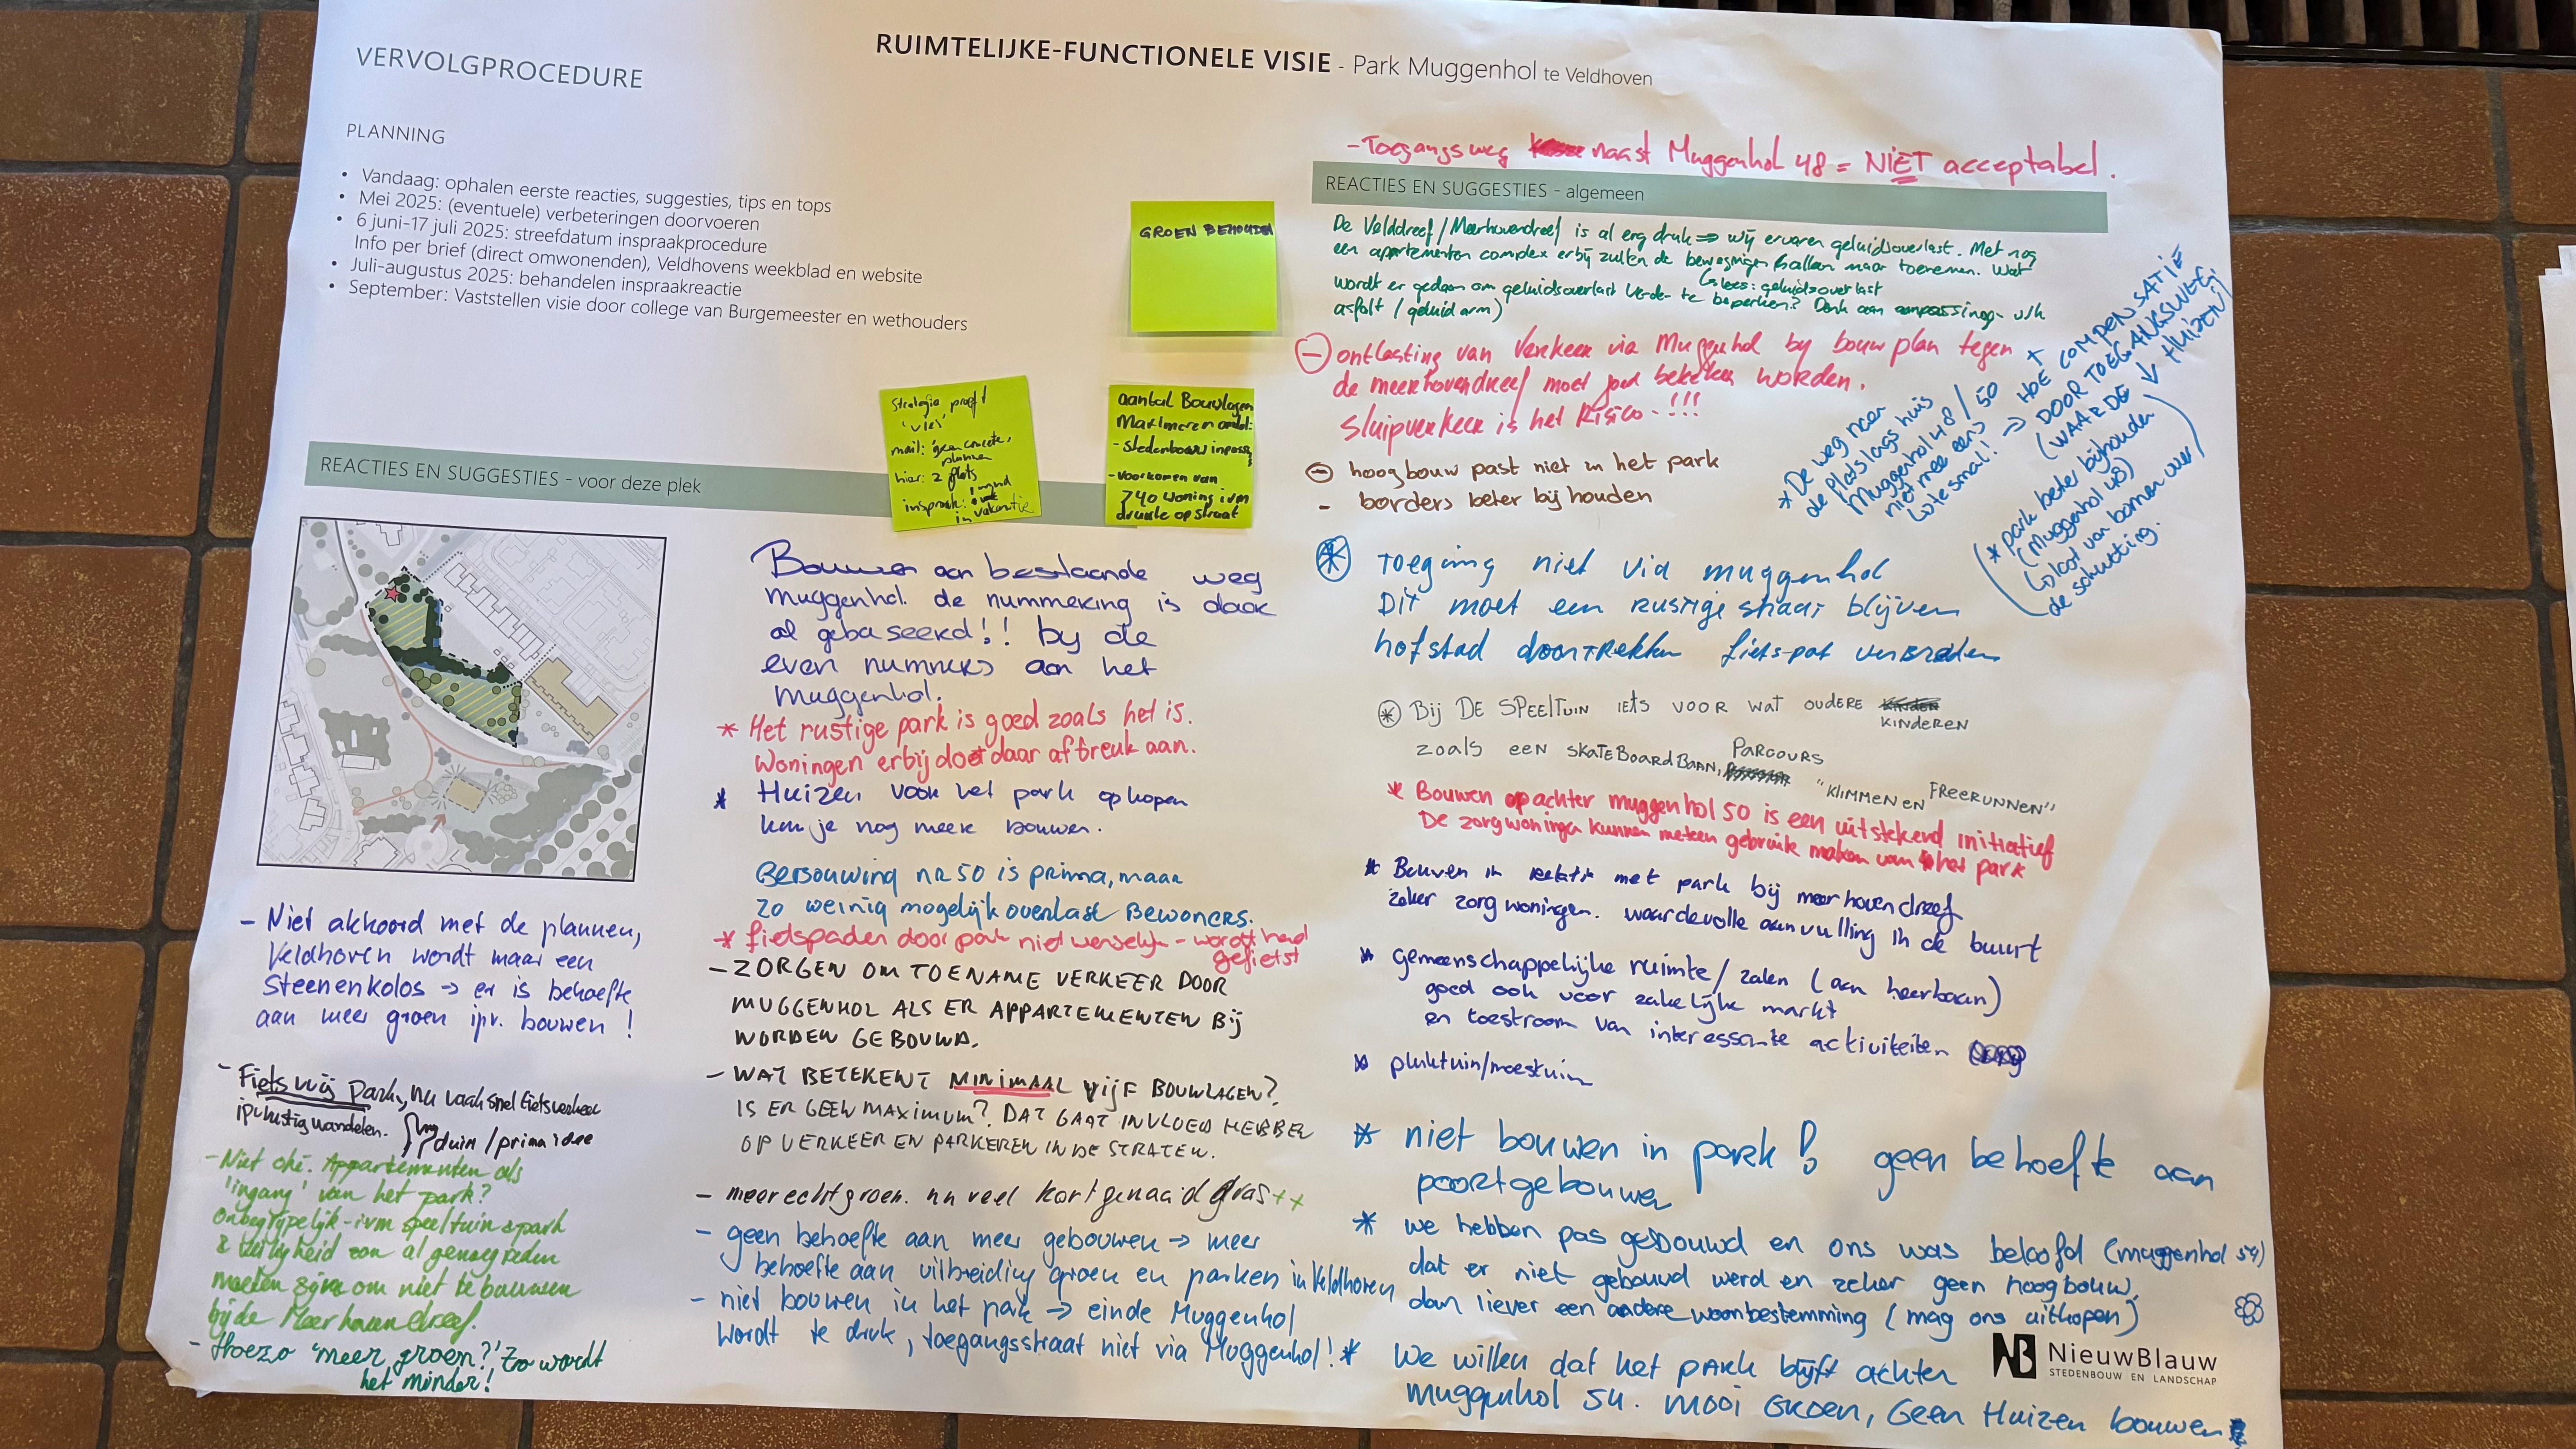 VERVOLGPROCEDURE
RUIMTELIJKE-FUNCTIONELE VISIE - Park Muggenhol te Veldhoven
PLANNING
• Vandaag: ophalen eerste reacties, suggesties, tips en tops
• Mei 2025: (eventuele) verbeteringen doorvoeren
• 6 juni-17 juli 2025: streefdatum inspraakprocedure
Info per brief (direct omwonenden), Veldhovens weekblad en website
• Juli-augustus 2025: behandelen inspraakreactie
• September: Vaststellen visie door college van Burgemeester en wethouders
GROEN BEHOUDEN
strategie proeft
'vies'
mail: geen concrete
plannen
hier: 2 flats
inspraak: 1 mynd
in vakantie
aantal Bouwlagen
- stedenbouw inpass
- voorkomen van
740 woning ivm
drukte op straat
REACTIES EN SUGGESTIES - voor deze plek
- Niet akkoord met de plannen,
Veldhoven wordt maar een
steenenkolos → er is behoefte
aan meer groen ipv. bouwen!
- Fietsvrij park, nu vaak snel fietsverkeer
ipv rustig wandelen.
duim / prima idee
- Niet oké. Appartementen als
'ingang' van het park?
Onbegrijpelijk - ivm speeltuin & park
& veiligheid zou al genoeg reden
moeten zijn om niet te bouwen
bij de Meerhovendreef.
- Hoezo 'meer groen?' Zo wordt
het minder!
Bouwen aan bestaande weg
muggenhol. de nummering is daar
al gebaseerd!! by de
even nummers aan het
muggenhol.
* Het rustige park is goed zoals het is.
Woningen erbij doet daar afbreuk aan.
* Huizen voor het park opkopen
kun je nog meer bouwen.
Bebouwing nr 50 is prima, maar
zo weinig mogelijk overlast Bewoners.
* fietspaden door park niet wenselijk - wordt hard
gefietst
- ZORGEN OM TOENAME VERKEER DOOR
MUGGENHOL ALS ER APPARTEMENTEN BIJ
WORDEN GEBOUWD.
- WAT BETEKENT MINIMAAL VIJF BOUWLAGEN?
IS ER GEEN MAXIMUM? DAT GAAT INVLOED HEBBEN
OP VERKEER EN PARKEREN IN DE STRATEN.
- meer echt groen. nu veel kort gemaaid gras ++
- geen behoefte aan meer gebouwen → meer
behoefte aan uitbreiding groen en parken in Veldhoven
- niet bouwen in het park → einde Muggenhol
wordt te druk, toegangsstraat niet via Muggenhol!
- Toegangsweg naast Muggenhol 48 = NIET acceptabel.
REACTIES EN SUGGESTIES - algemeen
De Velddreef/Meerhovendreef is al erg druk ⇒ wij ervaren geluidsoverlast. Met nog
een appartementen complex erbij zullen de bewegingen hallen maar toenemen. Wat
↳ lees: geluidsoverlast
wordt er gedaan om geluidsoverlast verder te beperken? Denk aan aanpassing v/h
asfalt (geluidarm)
⊖ ontlasting van verkeer via Muggenhol by bouwplan tegen
de meerhovendreef moet goed bekeken worden.
Sluipverkeer is het Risico.!!!
⊖ hoogbouw past niet in het park
- borders beter bijhouden
* De weg naar
de plas langs huis
Muggenhol 48 / 50
niet mee eens
↳ te smal!
+ HOE COMPENSATIE
→ DOOR TOEGANGSWEG?
(WAARDE ↓ HUIZEN)
(* park beter bijhouden
(Muggenhol 48)
↳ loof van bomen over
de schutting.
* Toegang niet via muggenhol
Dit moet een rustige straat blijven
hofstad doortrekken fietspat verbreden
* Bij DE SPEELTUIN IETS VOOR WAT OUDERE
KINDEREN
ZOALS EEN SKATEBOARDBAAN, PARCOURS
"KLIMMEN EN FREERUNNEN"
* Bouwen achter muggenhol 50 is een uitstekend initiatief
De zorgwoningen kunnen meteen gebruik maken van het park
* Bouwen in relatie met park bij meerhovendreef
zeker zorgwoningen. waardevolle aanvulling in de buurt
* gemeenschappelijke ruimte/zalen (aan heerbaan)
goed ook voor zakelijke markt
en toestroom van interessante activiteiten
* pluktuin/moestuin
* niet bouwen in park! geen behoefte aan
poortgebouwen
* we hebben pas gebouwd en ons was beloofd (muggenhol 54)
dat er niet gebouwd werd en zeker geen hoogbouw,
dan liever een andere woonbestemming (mag ons uitkopen)
* We willen dat het park blijft achter
muggenhol 54. Mooi Groen, Geen Huizen bouwen
NB NieuwBlauw
STEDENBOUW EN LANDSCHAP